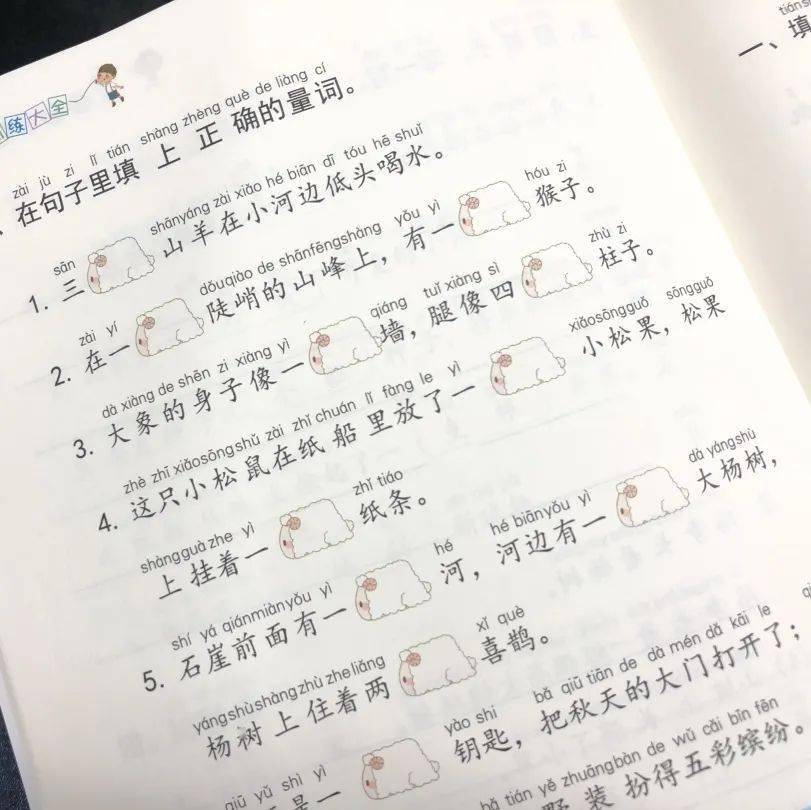 练大全
zài jù zi lǐ tián shàng zhèng què de liàng cí
、在句子里填上正确的量词。
sān shānyáng zài xiǎo hé biān dī tóu hē shuǐ
1. 三 山羊在小河边低头喝水。
zài yí dǒuqiào de shānfēngshàng yǒu yì hóu zi
2. 在一 陡峭的山峰上，有一 猴子。
dà xiàng de shēn zi xiàng yì qiáng tuǐ xiàng sì zhù zi
3. 大象的身子像一 墙，腿像四 柱子。
zhè zhī xiǎosōngshǔ zài zhǐ chuán lǐ fàng le yì xiǎosōngguǒ sōngguǒ
4. 这只小松鼠在纸船里放了一 小松果，松果
shàngguàzhe yì zhǐ tiáo
上挂着一 纸条。
shí yá qiánmiànyǒu yì hé hé biānyǒu yì dà yángshù
5. 石崖前面有一 河，河边有一 大杨树，
yángshùshàngzhù zheliǎng xǐ què
杨树上住着两 喜鹊。
qiū yǔ shì yì yào shi bǎ qiū tiān de dà mén dǎ kāi le
是一 钥匙，把秋天的大门打开了；
bǎ tián yě zhuāngbàn de wǔ cǎi bīn fēn
野装扮得五彩缤纷。
tián
一、填